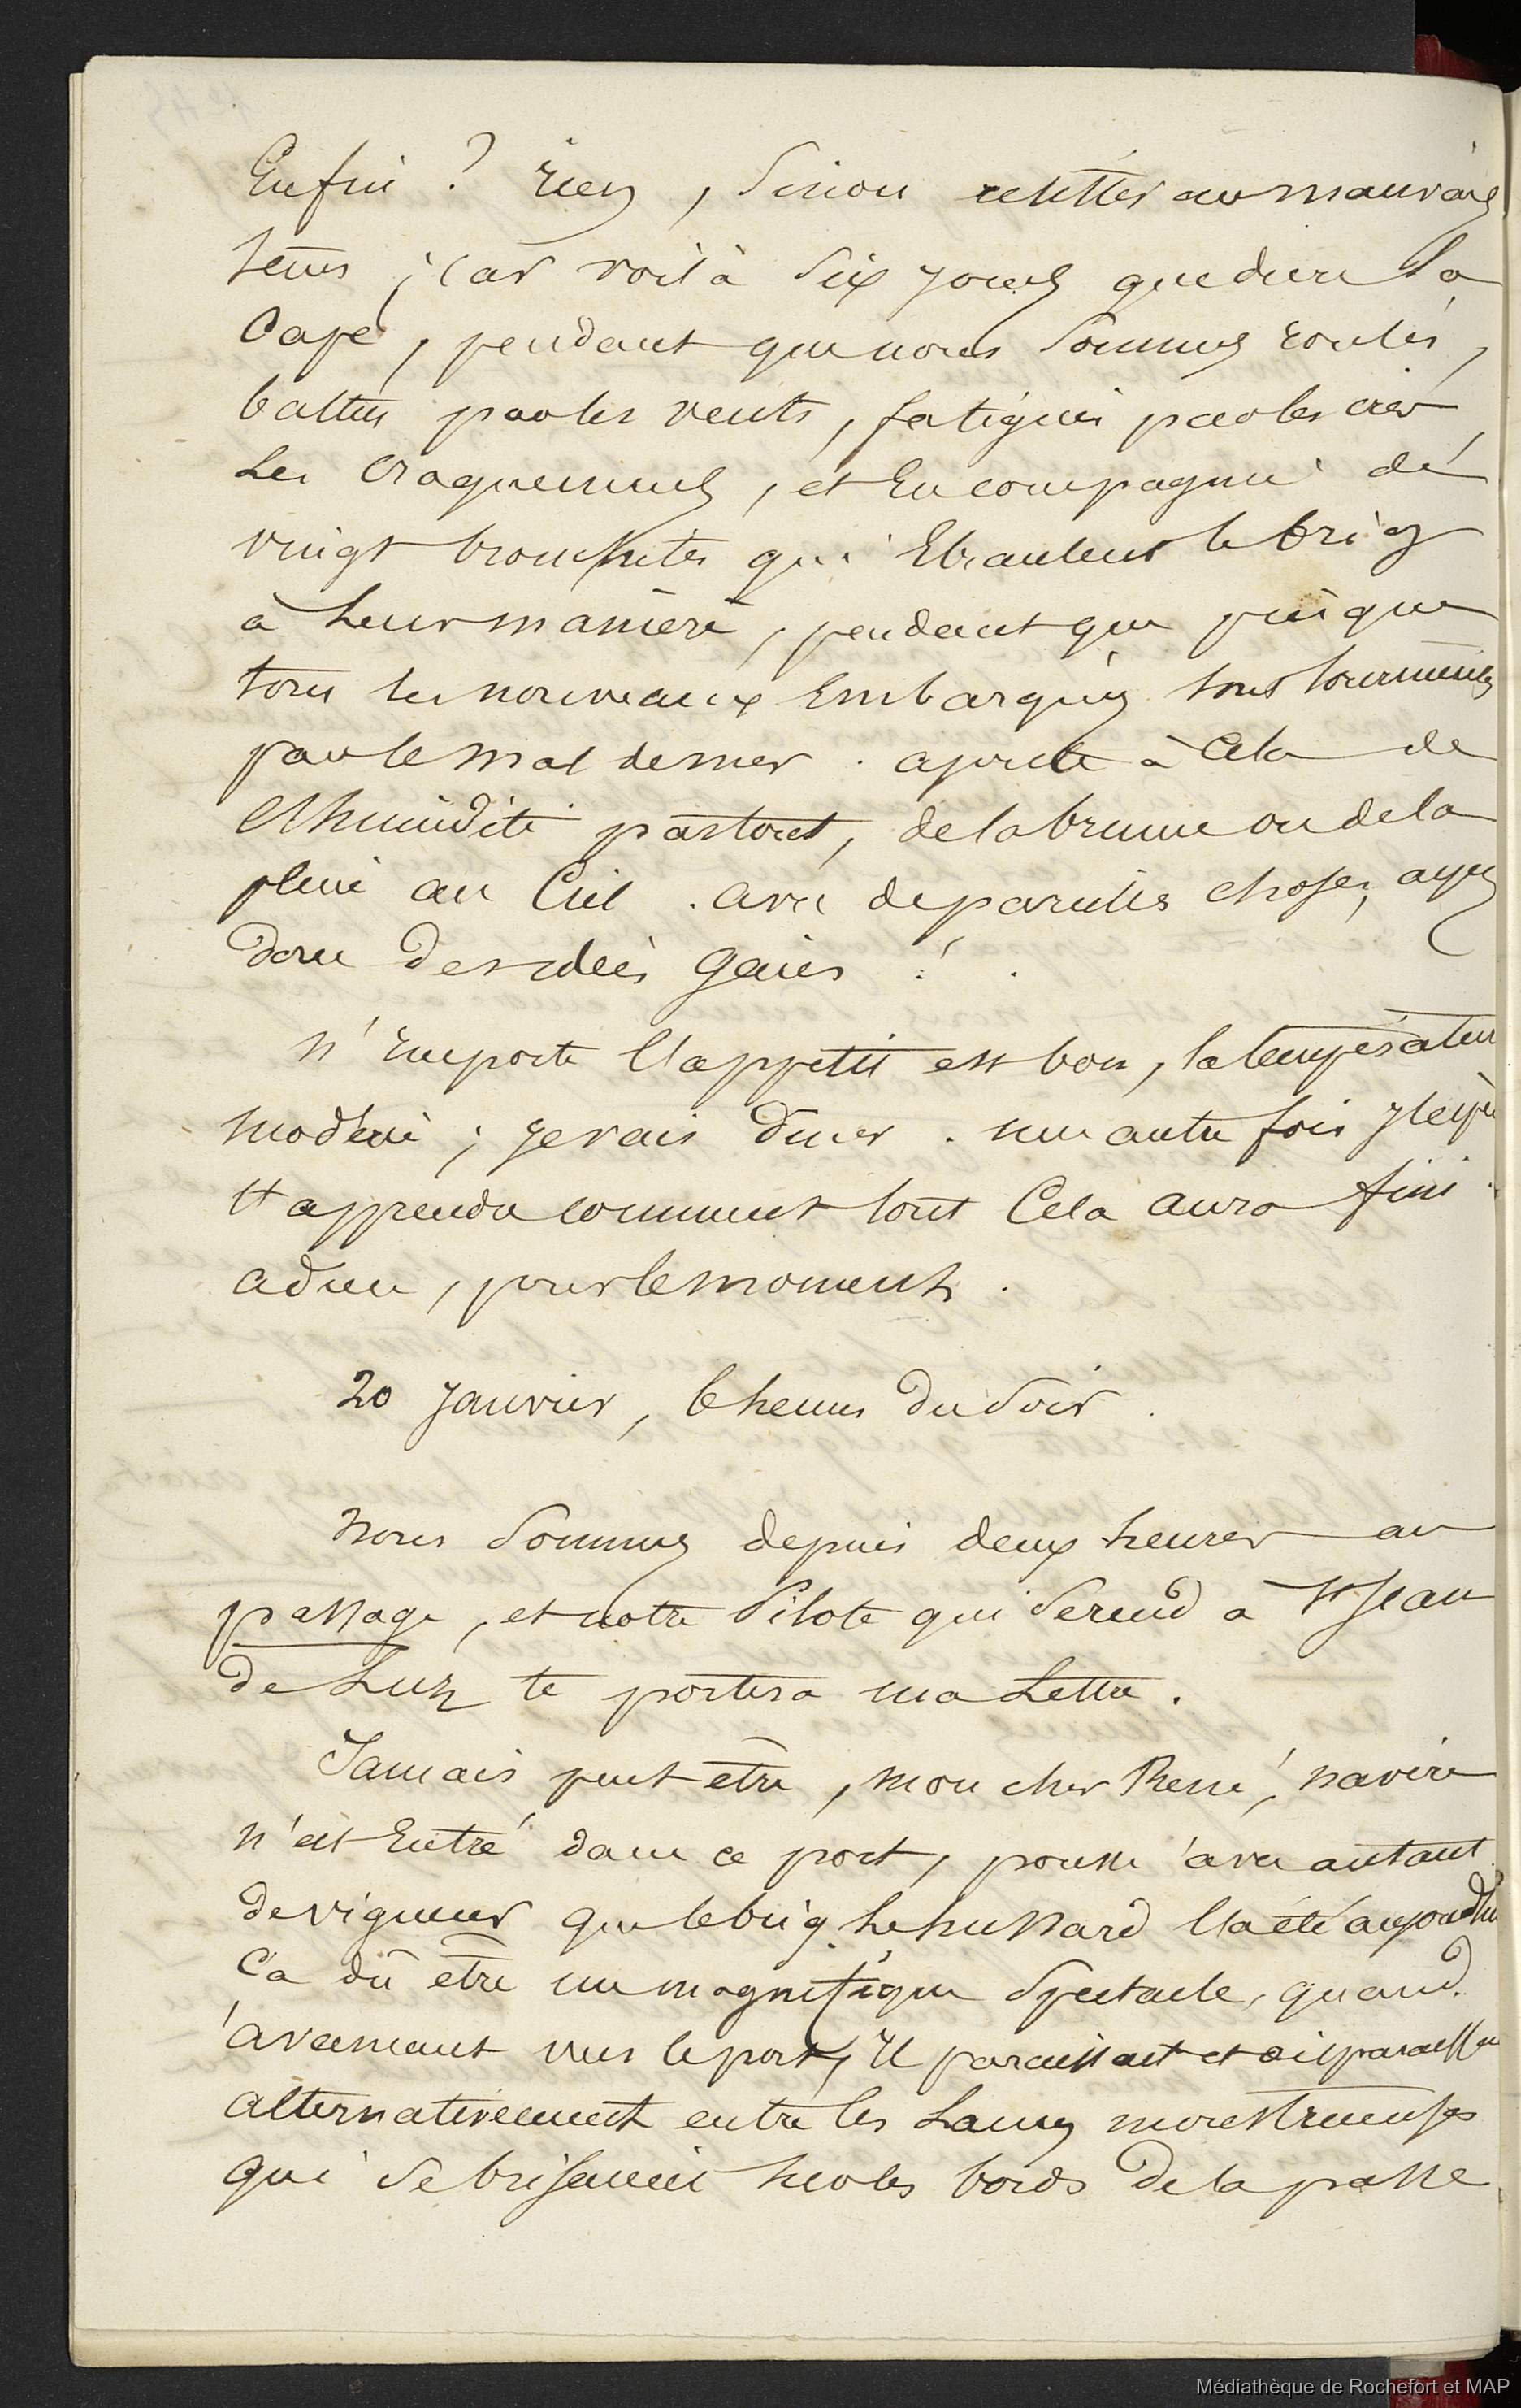 Enfin ? rien, Sinon au mauvais
tems ; car voilà Six jours que dure la
Cape, pendant que nous Sommes roulés,
battus par les vents, fatigués par les cris
Les craquements, et En compagnie de
vingt bronchites qui Ebranlent le brig
à leur manière, pendant que presque
tous les nouveaux Embarqués sont tourmentés
par le mal de mer. ajoute à Cela de
l'humidité partout, de la brume ou de la
pluie au Ciel. avec de pareilles choses, ayez
donc des idées gaies !
N'importe l'appetit est bon, la températur
modérée ; je vais diner. une autre fois
t'apprendre comment tout Cela aura fini.
adieu, pour le moment.
20 Janvier, 6 heures du Soir.
Nous Sommes depuis deux heures au
passage, et notre Pilote qui Se rend à St Jean
de Luz te portera ma Lettre.
Jamais peut être, mon cher René, navire
n'est Entré dans ce port, poussé avec autant
de vigueur que le brig Le hussard l'a été aujourd'hui
Ca dû être un magnifique Spectacle, quand.
avancant vers le port, Il paraissait et disparaissa
alternativement entre les Lames monstrueuses
qui Se brisaient sur les bords de la passe